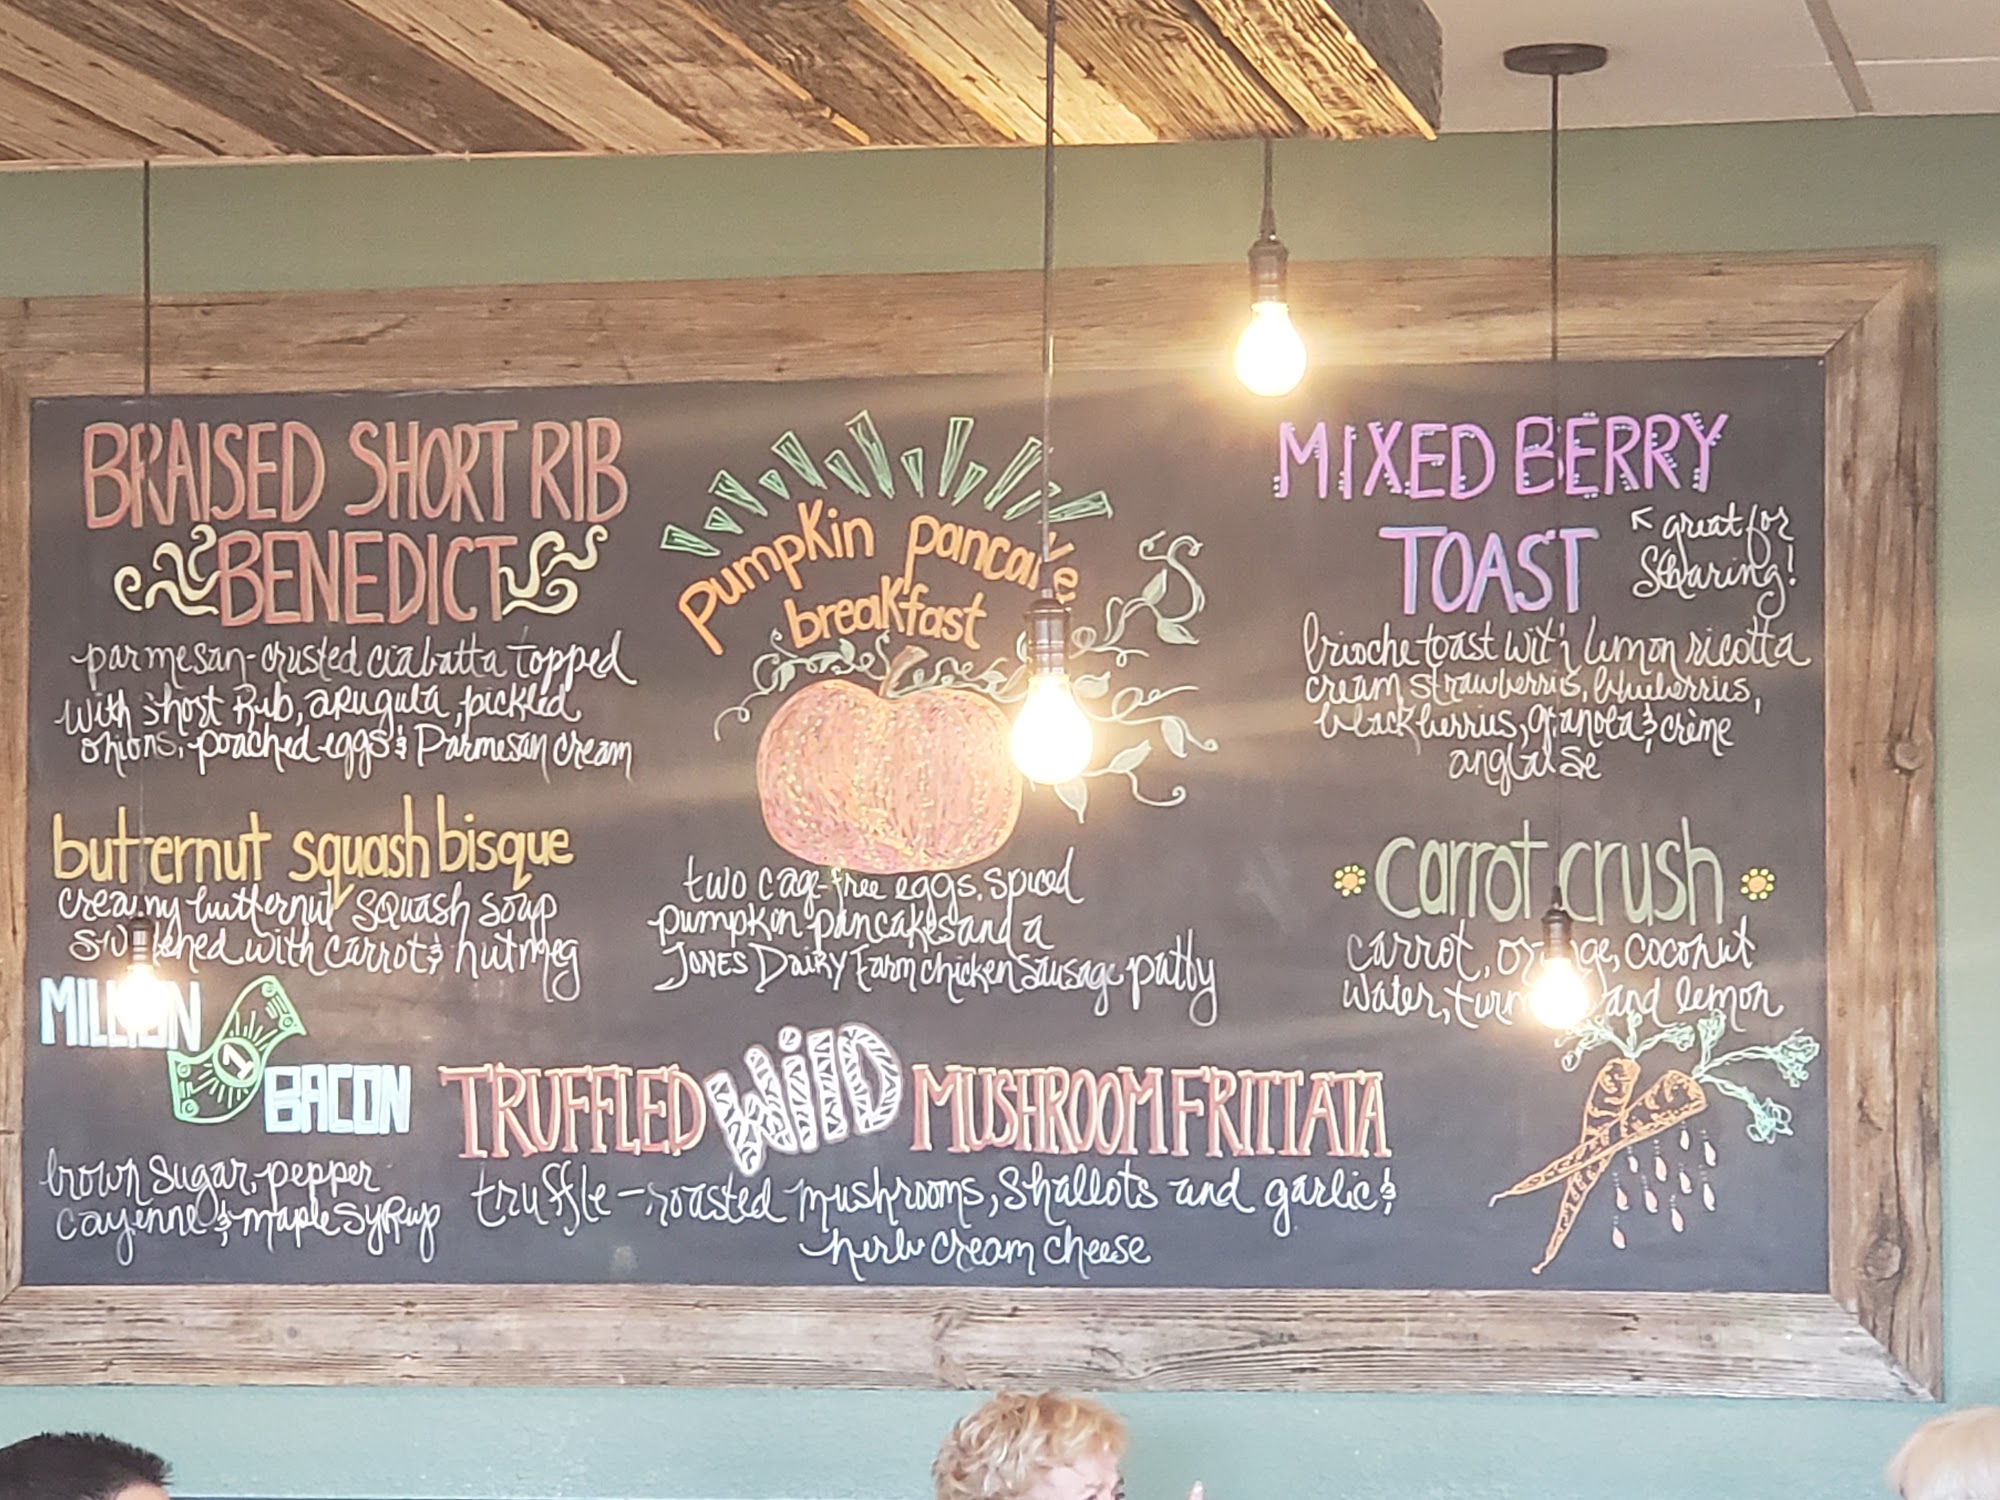 BRAISED SHORT RIB
BENEDICT
parmesan-crusted ciabatta topped
with short Rib, arugula, pickled
onions, poached eggs & Parmesan cream
butternut squash bisque
creamy butternut squash soup
sweetened with carrot & nutmeg
MILLION
1
BACON
brown sugar, pepper
cayenne & maple syrup
pumpkin pancake
breakfast
two cage-free eggs, spiced
pumpkin pancakes and a
JONES DAIRY Farm chicken sausage patty
TRUFFLED WILD MUSHROOM FRITTATA
truffle-roasted mushrooms, shallots and garlic &
herb cream cheese
MIXED BERRY
TOAST
great for
Sharing!
brioche toast with lemon ricotta
cream strawberries, blueberries,
blackberries, granola & crème
anglaise
carrot crush
carrot, orange, coconut
water, and lemon